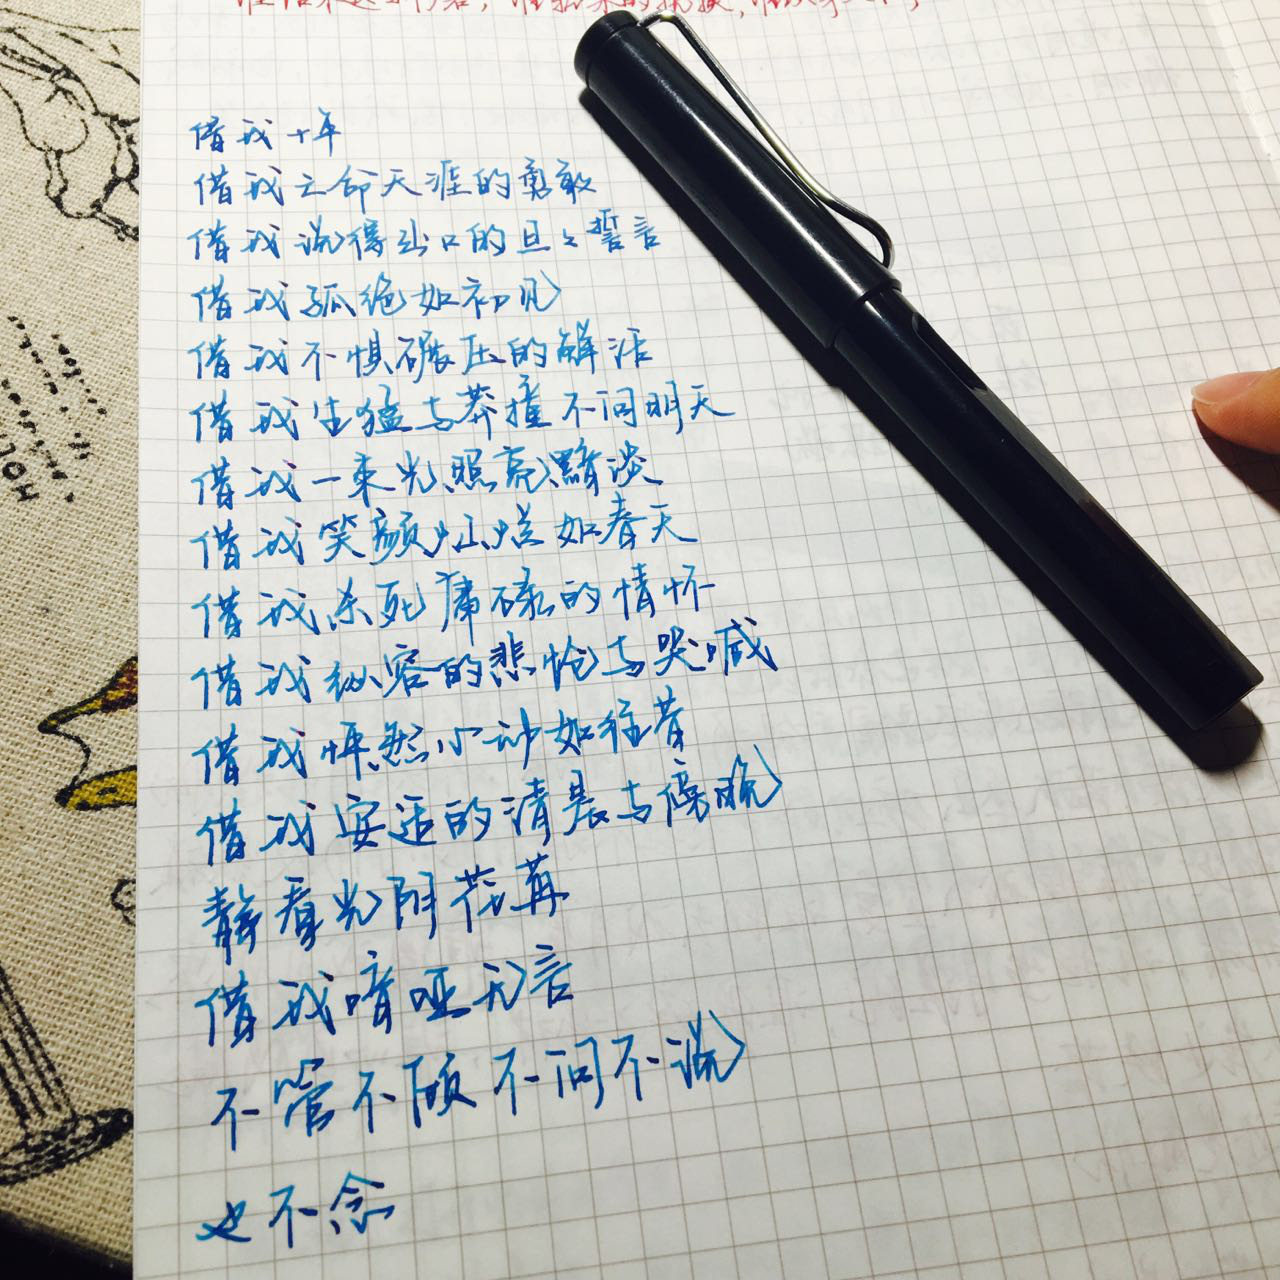 借我十年
借我亡命天涯的勇敢
借我说得出口的旦々誓言
借我孤绝如初见
借我不惧碾压的鲜活
借我生猛与莽撞不问明天
借我一束光照亮黯淡
借我笑颜灿烂如春天
借我杀死庸碌的情怀
借我纵容的悲怆与哭喊
借我怦然心动如往昔
借我安适的清晨与傍晚
静看光阴荏苒
借我喑哑无言
不管不顾不问不说
也不念